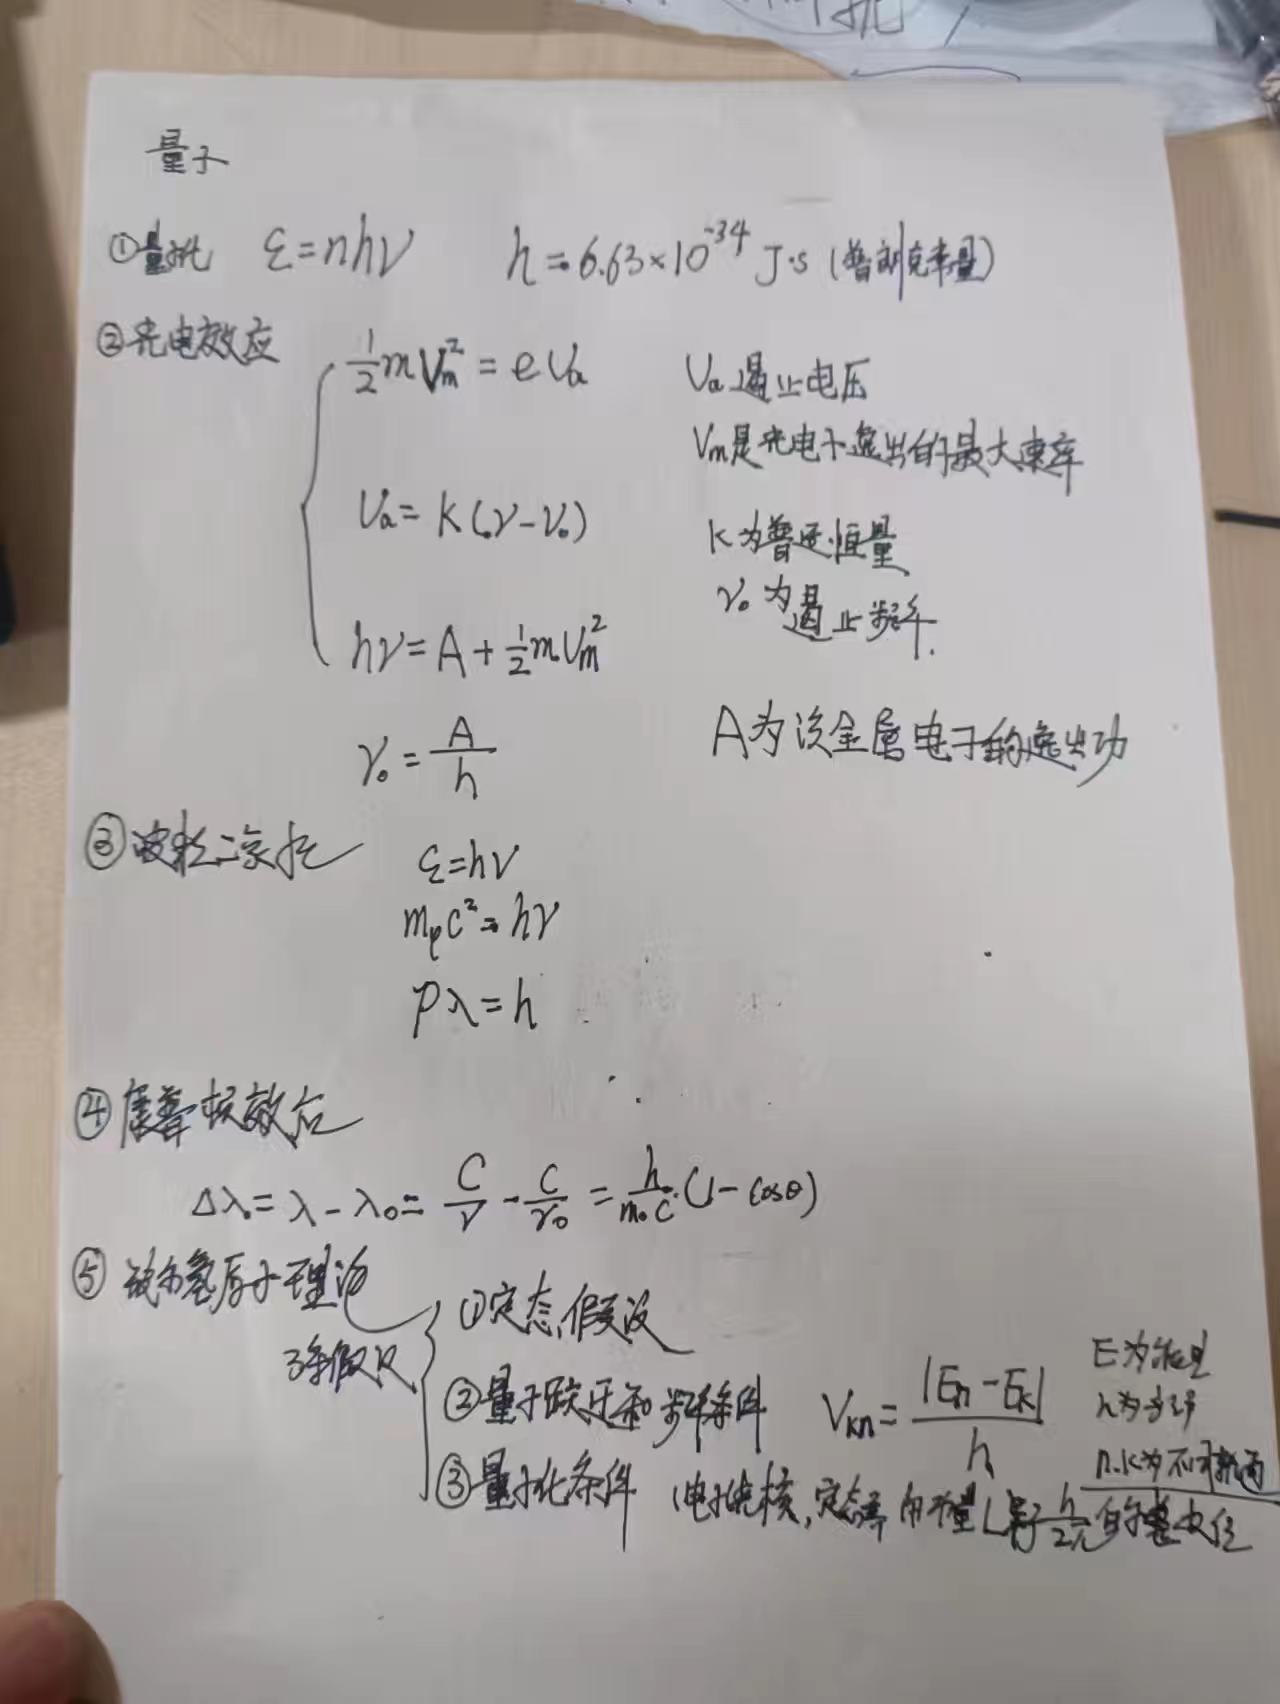 量子
①量子化 ε=nhν h=6.63×10⁻³⁴ J·s (普朗克常量)
②光电效应
½mVm²=eUa Ua遏止电压
Vm是光电子逸出的最大速率
Ua=K(ν-ν₀) K为普适恒量
ν₀为遏止频率.
hν=A+½mVm²
ν₀=A/h A为该金属电子的逸出功
③波粒二象性 ε=hν
mφc²=hν
pλ=h
④康普顿效应
Δλ=λ-λ₀=C/ν-C/ν₀=h/m₀c·(1-cosθ)
⑤玻尔氢原子理论
3条假设
①定态假设
②量子跃迁和频率条件 Vkn=|En-Ek|/h
E为能量
h为
n.k为不同轨道
③量子化条件 (电子绕核,定态 角动量L等于h/2π的整数倍